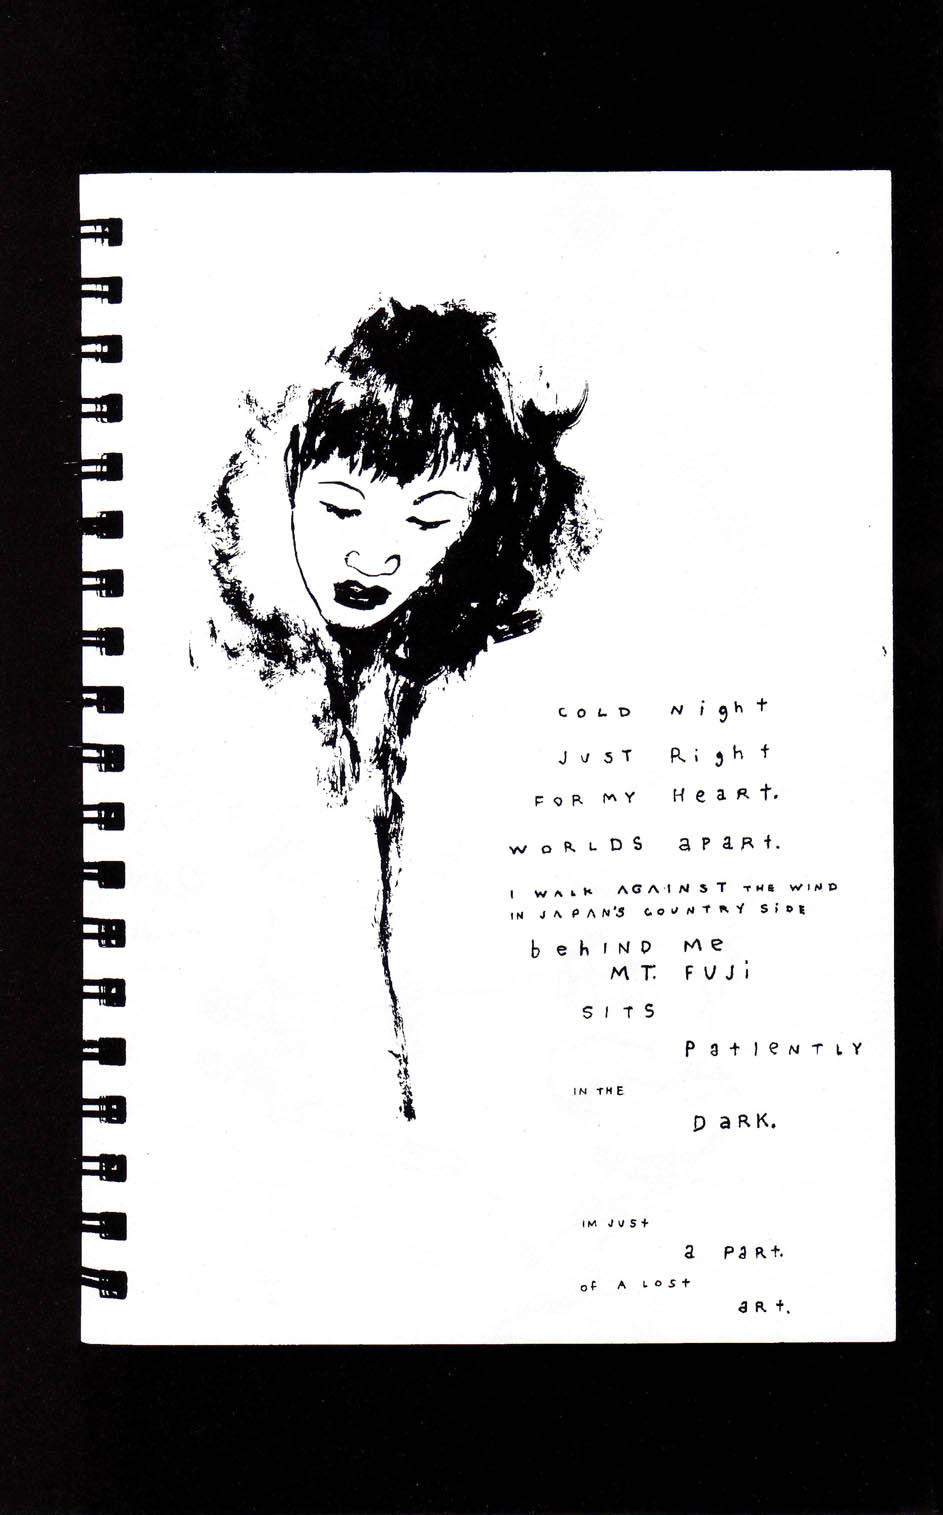 COLD Night
JUST Right
FOR MY HeaRt.
WORLDS aPaRt.
I WALK AGAINST THE WIND
IN JAPAN'S COUNTRY SiDE
behIND Me
MT. FUJi
SITS
PatIeNTLY
IN THE
DaRK.
IM JUSt
a PaRt.
of A LOSt
aRt.